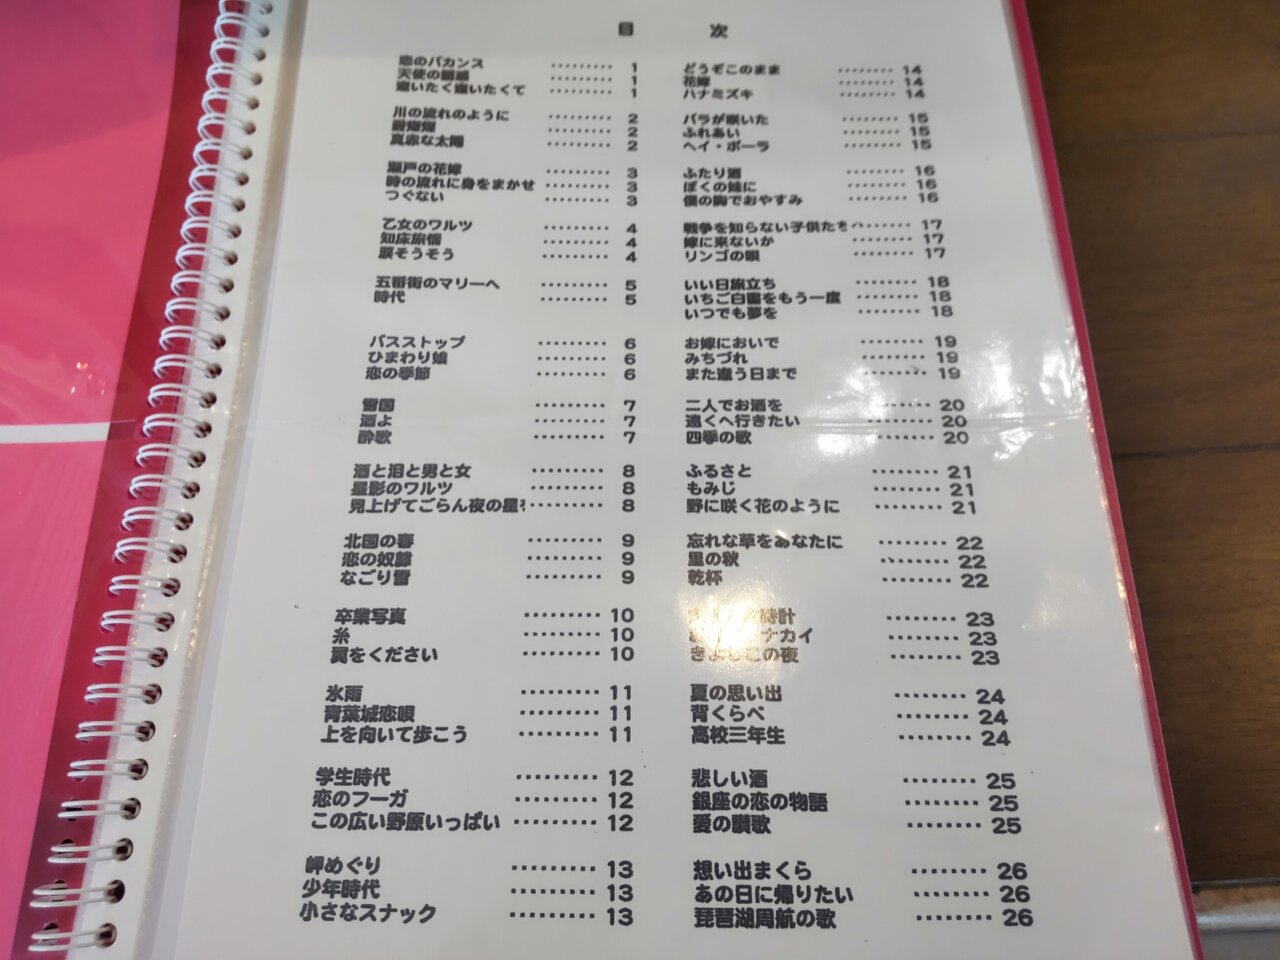 目 次
恋のバカンス ・・・・・・・・・ 1
天使の誘惑 ・・・・・・・・・ 1
逢いたく逢いたくて ・・・・・・・・・ 1
川の流れのように ・・・・・・・・・ 2
愛燦燦 ・・・・・・・・・ 2
真赤な太陽 ・・・・・・・・・ 2
瀬戸の花嫁 ・・・・・・・・・ 3
時の流れに身をまかせ ・・・・・・・・・ 3
つぐない ・・・・・・・・・ 3
乙女のワルツ ・・・・・・・・・ 4
知床旅情 ・・・・・・・・・ 4
涙そうそう ・・・・・・・・・ 4
五番街のマリーへ ・・・・・・・・・ 5
時代 ・・・・・・・・・ 5
バスストップ ・・・・・・・・・ 6
ひまわり娘 ・・・・・・・・・ 6
恋の季節 ・・・・・・・・・ 6
雪国 ・・・・・・・・・ 7
酒よ ・・・・・・・・・ 7
酔歌 ・・・・・・・・・ 7
酒と泪と男と女 ・・・・・・・・・ 8
星影のワルツ ・・・・・・・・・ 8
見上げてごらん夜の星を ・・・・・・・・・ 8
北国の春 ・・・・・・・・・ 9
恋の奴隷 ・・・・・・・・・ 9
なごり雪 ・・・・・・・・・ 9
卒業写真 ・・・・・・・・・ 10
糸 ・・・・・・・・・ 10
翼をください ・・・・・・・・・ 10
氷雨 ・・・・・・・・・ 11
青葉城恋唄 ・・・・・・・・・ 11
上を向いて歩こう ・・・・・・・・・ 11
学生時代 ・・・・・・・・・ 12
恋のフーガ ・・・・・・・・・ 12
この広い野原いっぱい ・・・・・・・・・ 12
岬めぐり ・・・・・・・・・ 13
少年時代 ・・・・・・・・・ 13
小さなスナック ・・・・・・・・・ 13
どうぞこのまま ・・・・・・・・ 14
花嫁 ・・・・・・・・ 14
ハナミズキ ・・・・・・・・ 14
バラが咲いた ・・・・・・・・ 15
ふれあい ・・・・・・・・ 15
ヘイ・ポーラ ・・・・・・・・ 15
ふたり酒 ・・・・・・・・ 16
ぼくの妹に ・・・・・・・・ 16
僕の胸でおやすみ ・・・・・・・・ 16
戦争を知らない子供たち ・・・・・・・・ 17
嫁に来ないか ・・・・・・・・ 17
リンゴの唄 ・・・・・・・・ 17
いい日旅立ち ・・・・・・・・ 18
いちご白書をもう一度 ・・・・・・・・ 18
いつでも夢を ・・・・・・・・ 18
お嫁においで ・・・・・・・・ 19
みちづれ ・・・・・・・・ 19
また逢う日まで ・・・・・・・・ 19
二人でお酒を ・・・・・・・・ 20
遠くへ行きたい ・・・・・・・・ 20
四季の歌 ・・・・・・・・ 20
ふるさと ・・・・・・・・ 21
もみじ ・・・・・・・・ 21
野に咲く花のように ・・・・・・・・ 21
忘れな草をあなたに ・・・・・・・・ 22
里の秋 ・・・・・・・・ 22
乾杯 ・・・・・・・・ 22
時計 ・・・・・・・・ 23
ナカイ ・・・・・・・・ 23
きよしこの夜 ・・・・・・・・ 23
夏の思い出 ・・・・・・・・ 24
背くらべ ・・・・・・・・ 24
高校三年生 ・・・・・・・・ 24
悲しい酒 ・・・・・・・・ 25
銀座の恋の物語 ・・・・・・・・ 25
愛の讃歌 ・・・・・・・・ 25
想い出まくら ・・・・・・・・ 26
あの日に帰りたい ・・・・・・・・ 26
琵琶湖周航の歌 ・・・・・・・・ 26